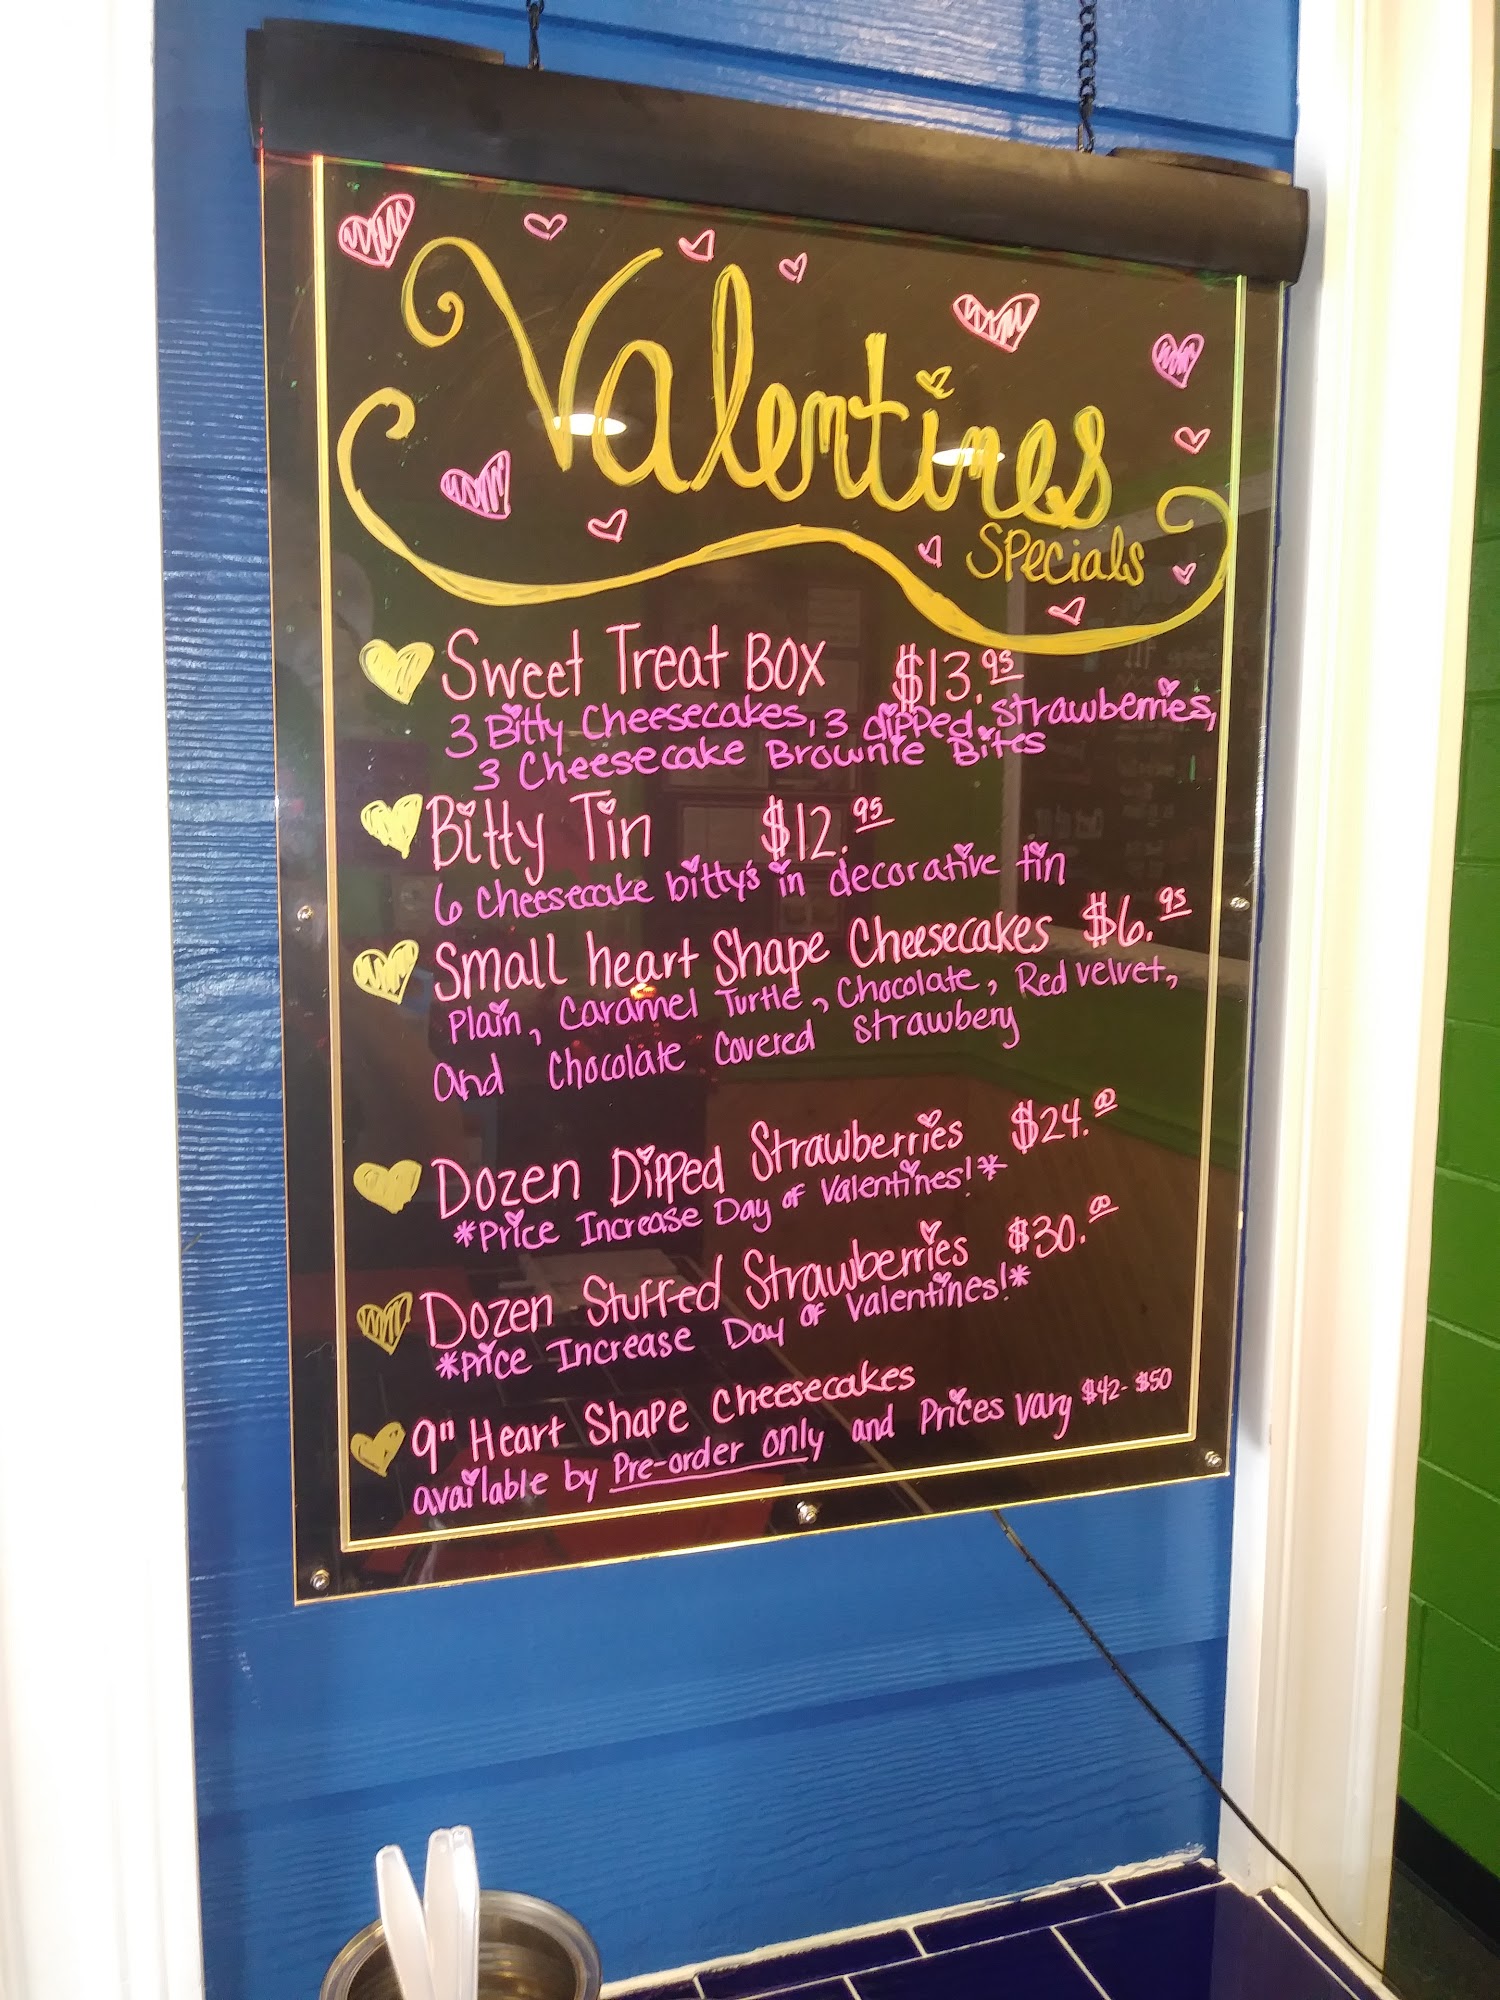 Valentines
Specials
Sweet Treat Box $13.95
3 Bitty Cheesecakes, 3 dipped strawberries,
3 Cheesecake Brownie Bites
Bitty Tin $12.95
6 Cheesecake bitty's in decorative tin
Small heart Shape Cheesecakes $6.95
Plain, Caramel Turtle, Chocolate, Red velvet,
and Chocolate Covered Strawbery
Dozen Dipped Strawberries $24.00
*Price Increase Day of Valentines!*
Dozen Stuffed Strawberries $30.00
*Price Increase Day of Valentines!*
9" Heart Shape Cheesecakes
available by Pre-order only and Prices vary $42-$50